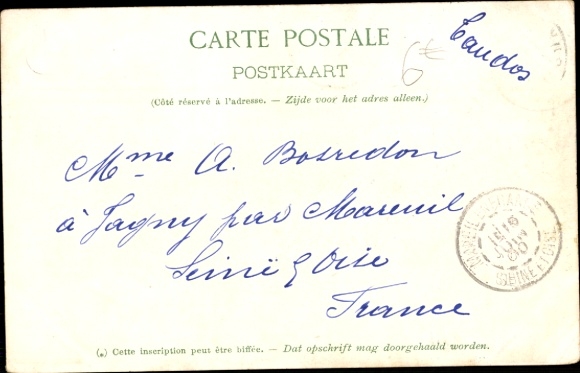 CARTE POSTALE
POSTKAART
(Côté réservé à l'adresse. — Zijde voor het adres alleen.)
6€
Taudos
Mme A. Bosredon
à Jagny par Mareuil
Seine & Oise
France
SEINE-ET-OISE
(*) Cette inscription peut être biffée. — Dat opschrift mag doorgehaald worden.